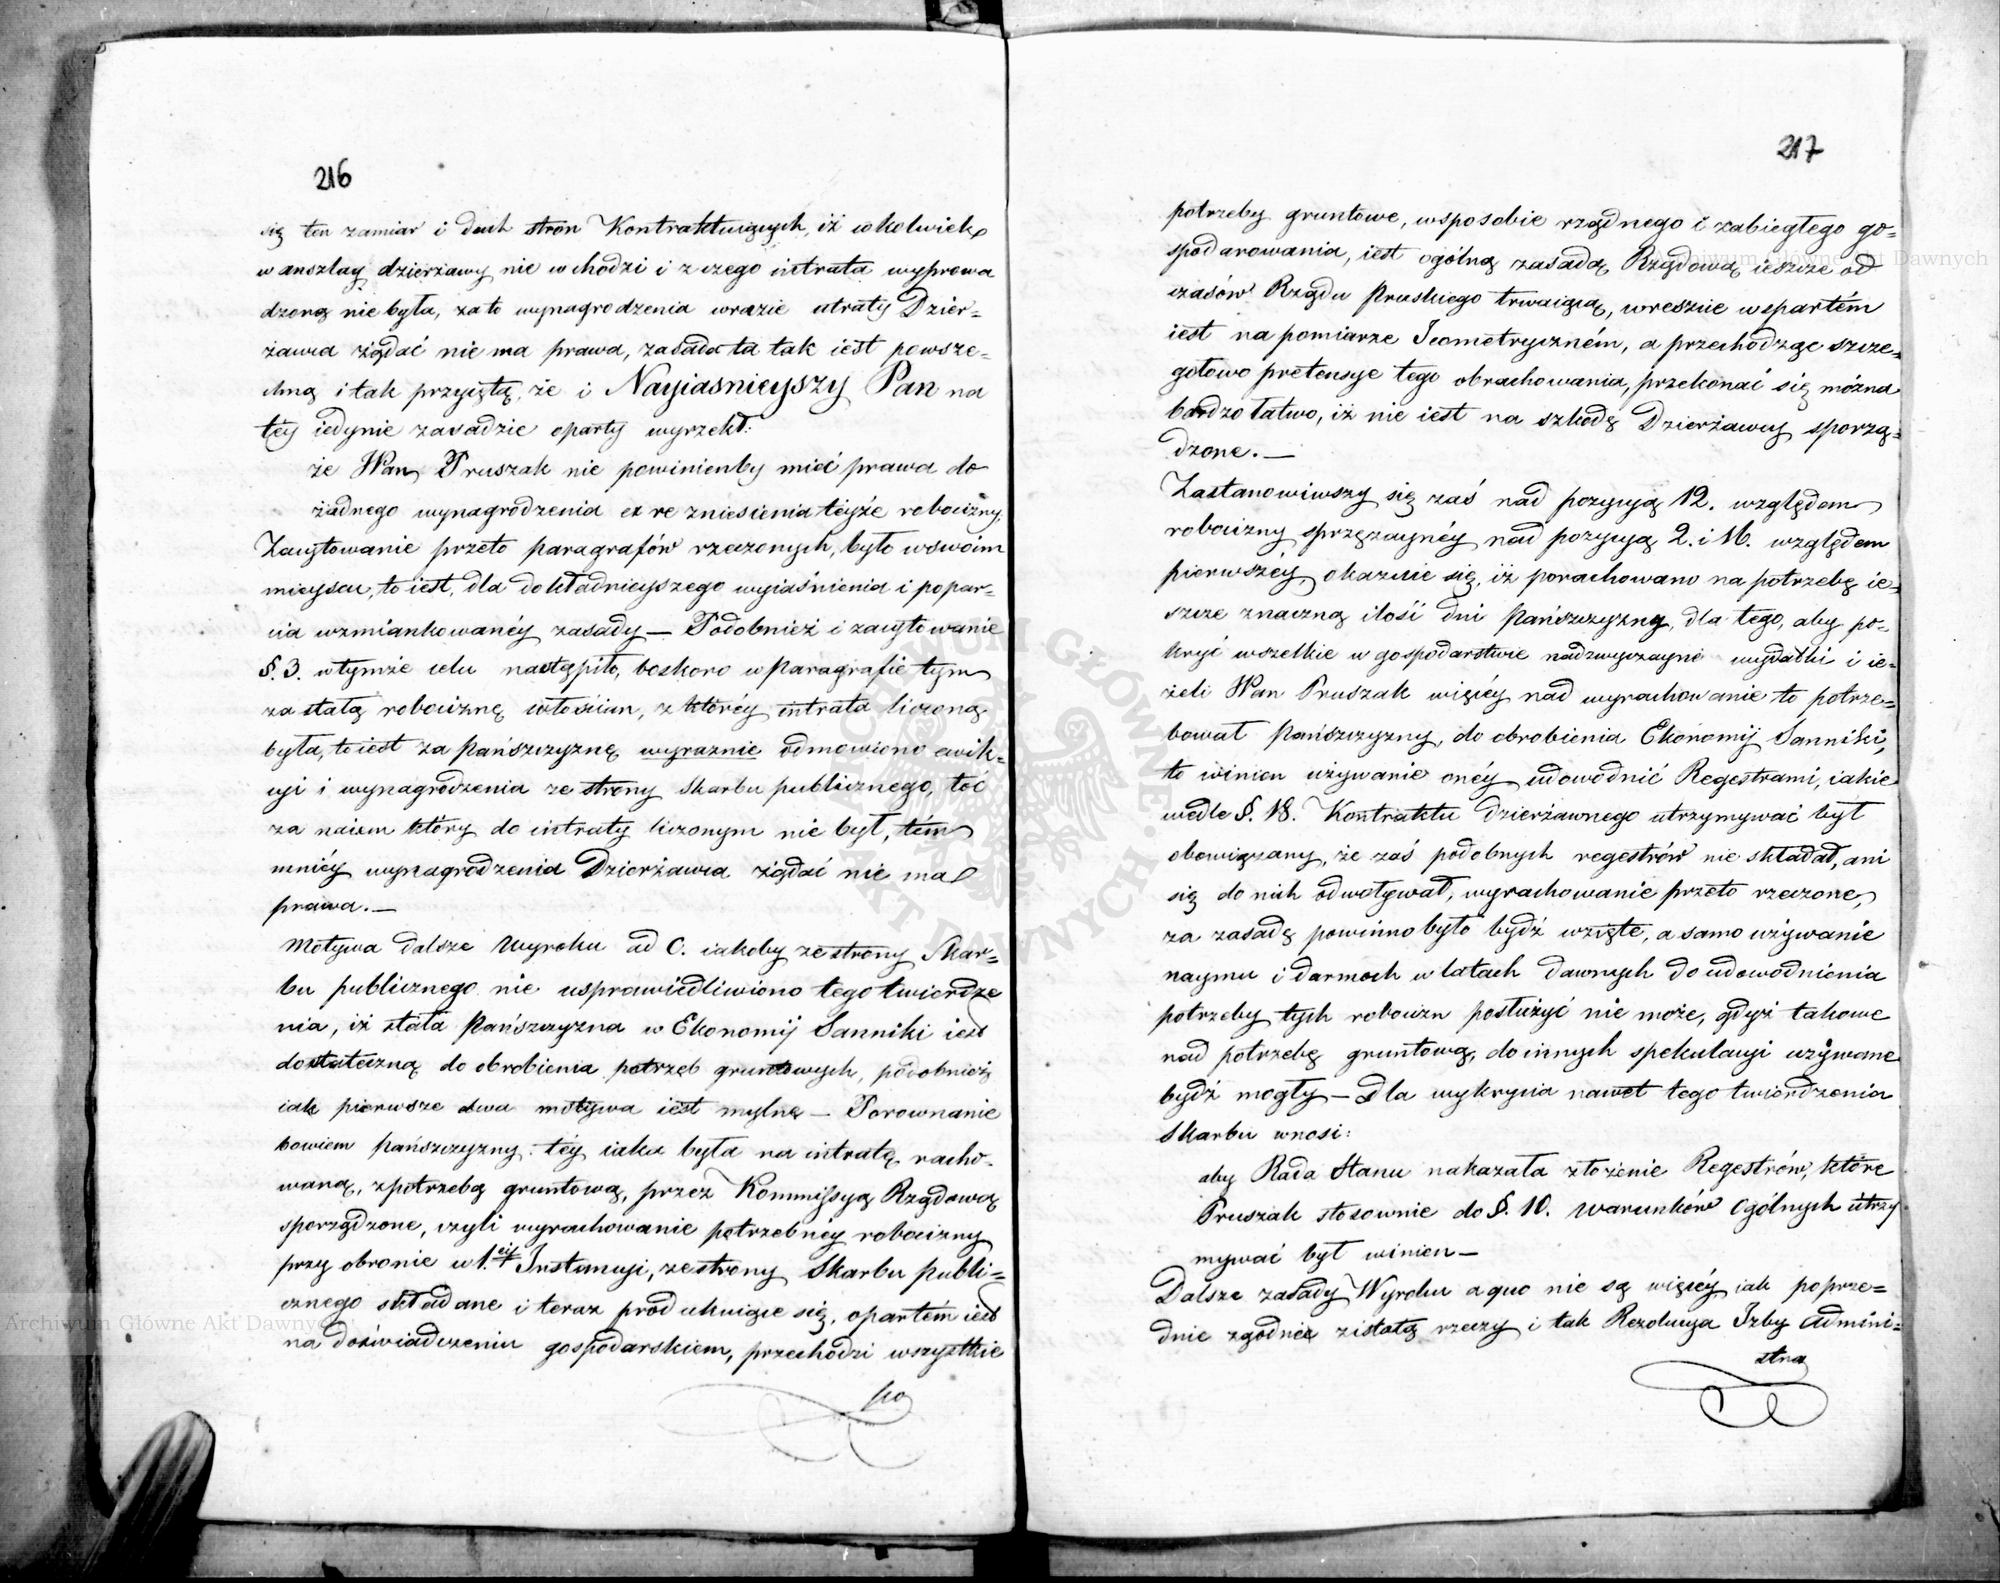 216
się ten zamiar i duch stron Kontraktuiących, iż cokolwiek
w anszlag dzierżawy nie wchodzi i z czego intrata wyprowa
dzoną nie była, za to wynagrodzenia wrazie utraty Dzier=
żawca żądać nie ma prawa, zasada ta tak iest powsze=
chną i tak przyiętą, że i Nayiasnieyszy Pan na
tey iedynie zasadzie oparty wyrzekł:
że Wan Pruszak nie powinienby mieć prawa do
żadnego wynagrodzenia ex re zniesienia teyże robocizny.
Zacytowanie przeto paragrafów rzeczonych, było wswoim
mieyscu, to iest, dla dokładnieyszego wyiaśnienia i popar=
cia wzmiankowanéy zasady — Podobnież i zacytowanie
§. 3. wtymże celu nastąpiło, boskoro w Paragrafie tym
za stałą robociznę włościan, z któréy intrata liczoną
była, to iest za Pańszczyznę wyraznie odmowiono ewik=
cyi i wynagrodzenia ze strony Skarbu publicznego, toć
za naiem który do intraty liczonym nie był, tém
mniéy wynagrodzenia Dzierżawca żądać nie ma
prawa. —
Motywa dalsze Wyroku ad C. iakoby ze strony Skar=
bu publicznego nie usprawiedliwiono tego twierdze
nia, iż stała Pańszczyzna w Ekonomij Sanniki iest
dostateczną do obrobienia potrzeb gruntowych, podobnież
iak pierwsze dwa motywa iest mylne — Porownanie
bowiem Pańszczyzny téy iaka była na intratę racho=
waną, zpotrzebą gruntową, przez Kommissyą Rządową
sporządzone, czyli wyrachowanie potrzebnéy robocizny
przy obronie w 1.éy Instancyi, ze strony Skarbu publi=
cznego składane i teraz produkuiące się, opartém iest
na doświadczeniu gospodarskiem, przechodzi wszystkie
po
217
potrzeby gruntowe, wsposobie rządnego i zabiegłego go=
spodarowania, iest ogólną zasadą Rządową ieszcze od
czasów Rządu Pruskiego trwaiącą, wreszcie wspartém
iest na pomiarze Jeometryczném, a przechodząc szcze=
gółowo pretensye tego obrachowania, przekonać się można
bardzo łatwo, iż nie iest na szkodę Dzierżawcy sporzą=
dzone. —
Zastanowiwszy się zaś nad pozycyą 12. względem
robocizny sprzęzaynéy nad pozycyą 2. i 16. względem
pierwszéy, okazuie się, iż porachowano na potrzebę ie=
szcze znaczną ilość dni Pańszczyzny, dla tego, aby po=
kryć wszelkie w gospodarstwie nadzwyczayne wydatki i ie=
żeli Wan Pruszak więcéy nad wyrachowanie to potrze=
bował Pańszczyzny, do obrobienia Ekonomij Sanniki,
to winien używanie onéy udowodnić Regestrami, iakie
wedle §. 18. Kontraktu dzierżawnego utrzymywać był
obowiązany, że zaś podobnych regestrów nie składał, ani
się do nich odwoływał, wyrachowanie przeto rzeczone,
za zasadę powinno było bydź wzięte, a samo używanie
naymu i darmoch w latach dawnych do udowodnienia
potrzeby tych robocizn posłużyć nie może, gdyż takowe
nad potrzebę gruntową, do innych spekulacyi używane
bydź mogły — dla wykrycia nawet tego twierdzenia
Skarbu wnosi:
aby Rada Stanu nakazała złożenie Regestrów, które
Pruszak stosownie do §. 10. warunków ogólnych utrzy
mywać był winien —
Dalsze zasady Wyroku a quo nie są więcéy iak poprze=
dnie zgodne zistotą rzeczy i tak Rezolucya Izby Admini=
stra
Archiwum Główne Akt Dawnych
Archiwum Główne Akt Dawnych
ARCHIWUM GŁÓWNE AKT DAWNYCH